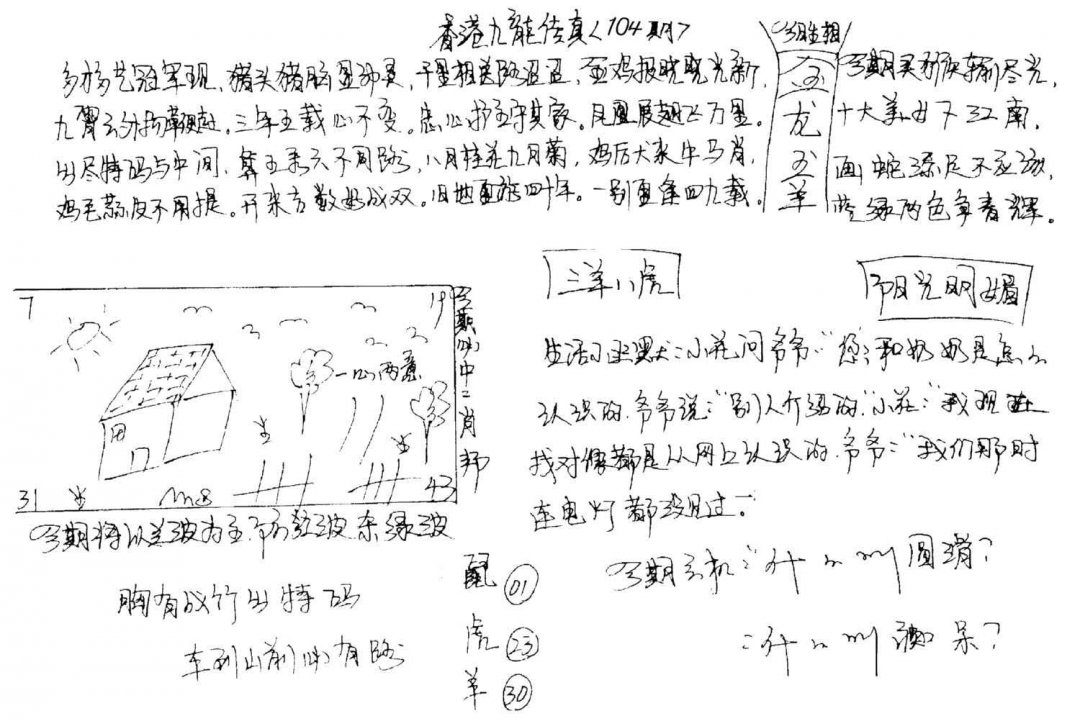 香港九龍传真<104期>
多才多艺冠军现,猪头猪脑显神灵,千里相送路迢迢,金鸡报晓晓光新,
九霄云外扬鞭赶。三年五载心不变。忠心护主守其家。凤凰展翅飞万里。
出尽特码与中间,算五来六不同路,八月桂花九月菊,鸡后大来牛马肖,
鸡毛蒜皮不用提。开来方数好成双。旧地重症四十年。一别重条四九载。
今期生相
龙
羊
今期买
十大美女下江南,
画蛇添足不应该,
蓝绿两色争春辉。
三羊八虎
阳光明媚
7
19
31
43
一心两意
今期必中二肖邦
今期特以兰波为主市防红波杂绿波
胸有成竹出特码
车到山前必有路
鼠 01
虎 23
羊 30
生活小幽默:小花问爷爷:"您和奶奶是怎么
认识的.爷爷说:"别人介绍的"小花:"我现在
找对像都是从网上认识的.爷爷:"我们那时
连电灯都没见过。
今期玄机:"什么 圆
什么 呆?